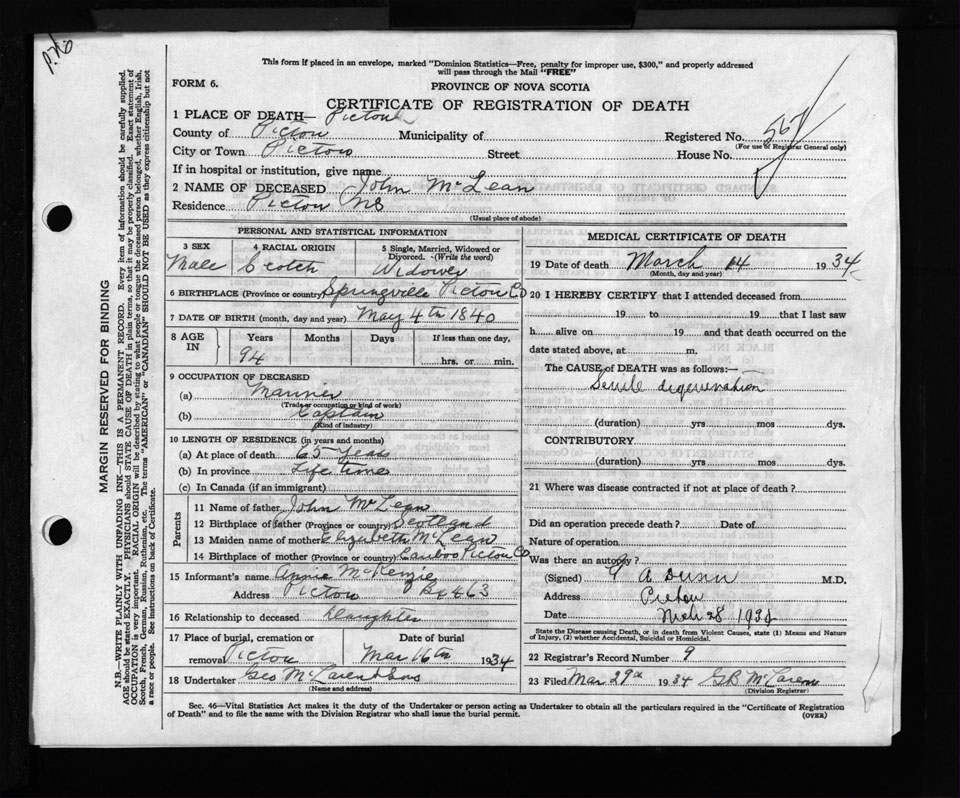 P.X6
This form if placed in an envelope, marked "Dominion Statistics—Free, penalty for improper use, $300," and properly addressed
will pass through the Mail "FREE"
FORM 6.
PROVINCE OF NOVA SCOTIA
CERTIFICATE OF REGISTRATION OF DEATH
1 PLACE OF DEATH— Pictou
County of Pictou Municipality of Registered No. 567
(For use of Registrar General only)
City or Town Pictou Street House No.
If in hospital or institution, give name
2 NAME OF DECEASED John McLean
Residence Pictou NS
(Usual place of abode)
PERSONAL AND STATISTICAL INFORMATION
3 SEX 4 RACIAL ORIGIN 5 Single, Married, Widowed or
Divorced. (Write the word)
Male Scotch Widower
6 BIRTHPLACE (Province or country) Springville Pictou Co
7 DATE OF BIRTH (month, day and year) May 4th 1840
8 AGE IN Years Months Days If less than one day,
94 hrs. or min.
9 OCCUPATION OF DECEASED
(a) Mariner
(Trade or occupation or kind of work)
(b) Captain
(Kind of industry)
10 LENGTH OF RESIDENCE (in years and months)
(a) At place of death 65 Years
(b) In province Life time
(c) In Canada (if an immigrant)
Parents
11 Name of father John McLean
12 Birthplace of father (Province or country) Scotland
13 Maiden name of mother Elizabeth McLean
14 Birthplace of mother (Province or country) Pictou Co
15 Informant's name Annie McKenzie
Address Pictou Bx 463
16 Relationship to deceased Daughter
17 Place of burial, cremation or Date of burial
removal Pictou Mar 16th 1934
18 Undertaker Geo McLaren & Sons
(Name and address)
MEDICAL CERTIFICATE OF DEATH
19 Date of death March 14 1934
(Month, day and year)
20 I HEREBY CERTIFY that I attended deceased from
19 to 19 that I last saw
h alive on 19 and that death occurred on the
date stated above, at m.
The CAUSE of DEATH was as follows:—
Senile degeneration
(duration) yrs mos dys.
CONTRIBUTORY
(duration) yrs mos dys.
21 Where was disease contracted if not at place of death?
Did an operation precede death? Date of
Nature of operation
Was there an autopsy?
(Signed) G A Dunn M.D.
Address Pictou
Date Mch 28 1934
State the Disease causing Death, or in death from Violent Causes, state (1) Means and Nature
of Injury, (2) whether Accidental, Suicidal or Homicidal.
22 Registrar's Record Number 9
23 Filed Mar 29th 1934 GB McLaren
(Division Registrar)
Sec. 46—Vital Statistics Act makes it the duty of the Undertaker or person acting as Undertaker to obtain all the particulars required in the "Certificate of Registration
of Death" and to file the same with the Division Registrar who shall issue the burial permit. (OVER)
MARGIN RESERVED FOR BINDING
N.B.—WRITE PLAINLY WITH UNFADING INK—THIS IS A PERMANENT RECORD. Every item of information should be carefully supplied.
AGE should be stated EXACTLY. PHYSICIANS should STATE CAUSE OF DEATH in plain terms, so that it may be properly classified. Exact statement of
OCCUPATION is very important. RACIAL ORIGIN will be described by stating to what people or tongue the deceased person belonged, whether English, Irish,
Scotch, French, German, Russian, Ruthenian, etc. The terms "AMERICAN" or "CANADIAN" SHOULD NOT BE USED as they express citizenship but not
a race or people. See instructions on back of Certificate.